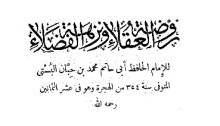 روضة العقلاء ونزهة الفضلاء
للإمام الحافظ أبي حاتم محمد بن حبان البستي
المتوفى سنة ٣٥٤ من الهجرة وهو في عشر الثمانين
رحمه الله